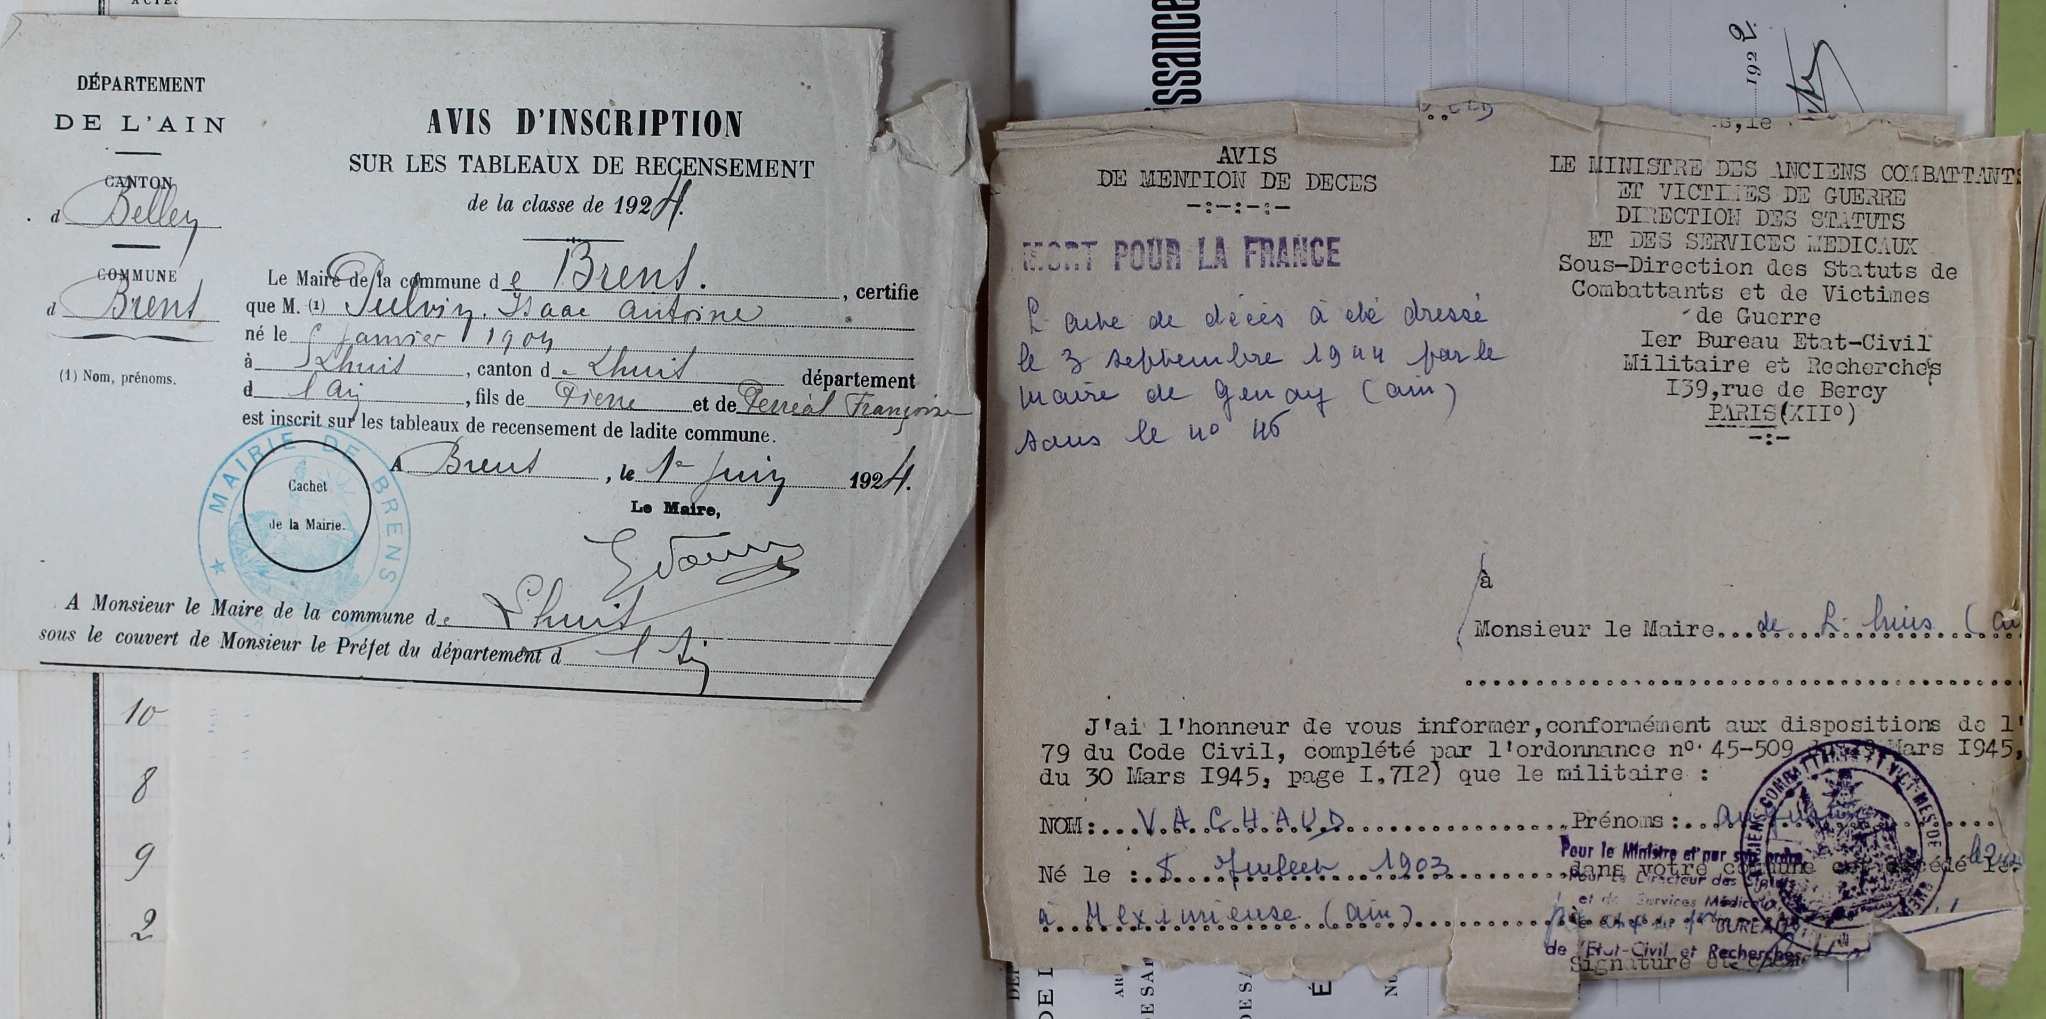 DÉPARTEMENT
DE L'AIN
CANTON
d Belley
COMMUNE
d Brens
(1) Nom, prénoms.
AVIS D'INSCRIPTION
SUR LES TABLEAUX DE RECENSEMENT
de la classe de 1924.
Le Maire de la commune de Brens. , certifie
que M. (1) Pulvin, Isaac Antoine
né le janvier 1904
à Lhuis , canton de Lhuis département
d l'Ain , fils de Pierre et de Perréal Françoise
est inscrit sur les tableaux de recensement de ladite commune.
A Brens , le 1er Juin 1924.
Le Maire,
MAIRIE DE BRENS
Cachet
de la Mairie.
A Monsieur le Maire de la commune de Lhuis
sous le couvert de Monsieur le Préfet du département d l'Ain
10
8
9
2
issance
192
AVIS
DE MENTION DE DECES
-:-:-:-
MORT POUR LA FRANCE
L'acte de décès à été dressé
le 3 septembre 1944 par le
maire de Genay (ain)
sous le n° 46
LE MINISTRE DES ANCIENS COMBATTANTS
ET VICTIMES DE GUERRE
DIRECTION DES STATUTS
ET DES SERVICES MEDICAUX
Sous-Direction des Statuts de
Combattants et de Victimes
de Guerre
Ier Bureau Etat-Civil
Militaire et Recherches
I39,rue de Bercy
PARIS (XII°)
-:-
à
Monsieur le Maire...de L'huis (ai
J'ai l'honneur de vous informer,conformément aux dispositions de l'
79 du Code Civil, complété par l'ordonnance n° 45-509 Mars I945,
du 30 Mars I945, page I.7I2) que le militaire :
NOM:...VACHAUD Prénoms:
Né le : 8 Juillet 1903 dans votre commune est décédé le
à Meximieuse (ain)
Pour le Ministre et par son ordre
et des Services Médicaux
BUREAU
de l'Etat-Civil et Recherches
Signature